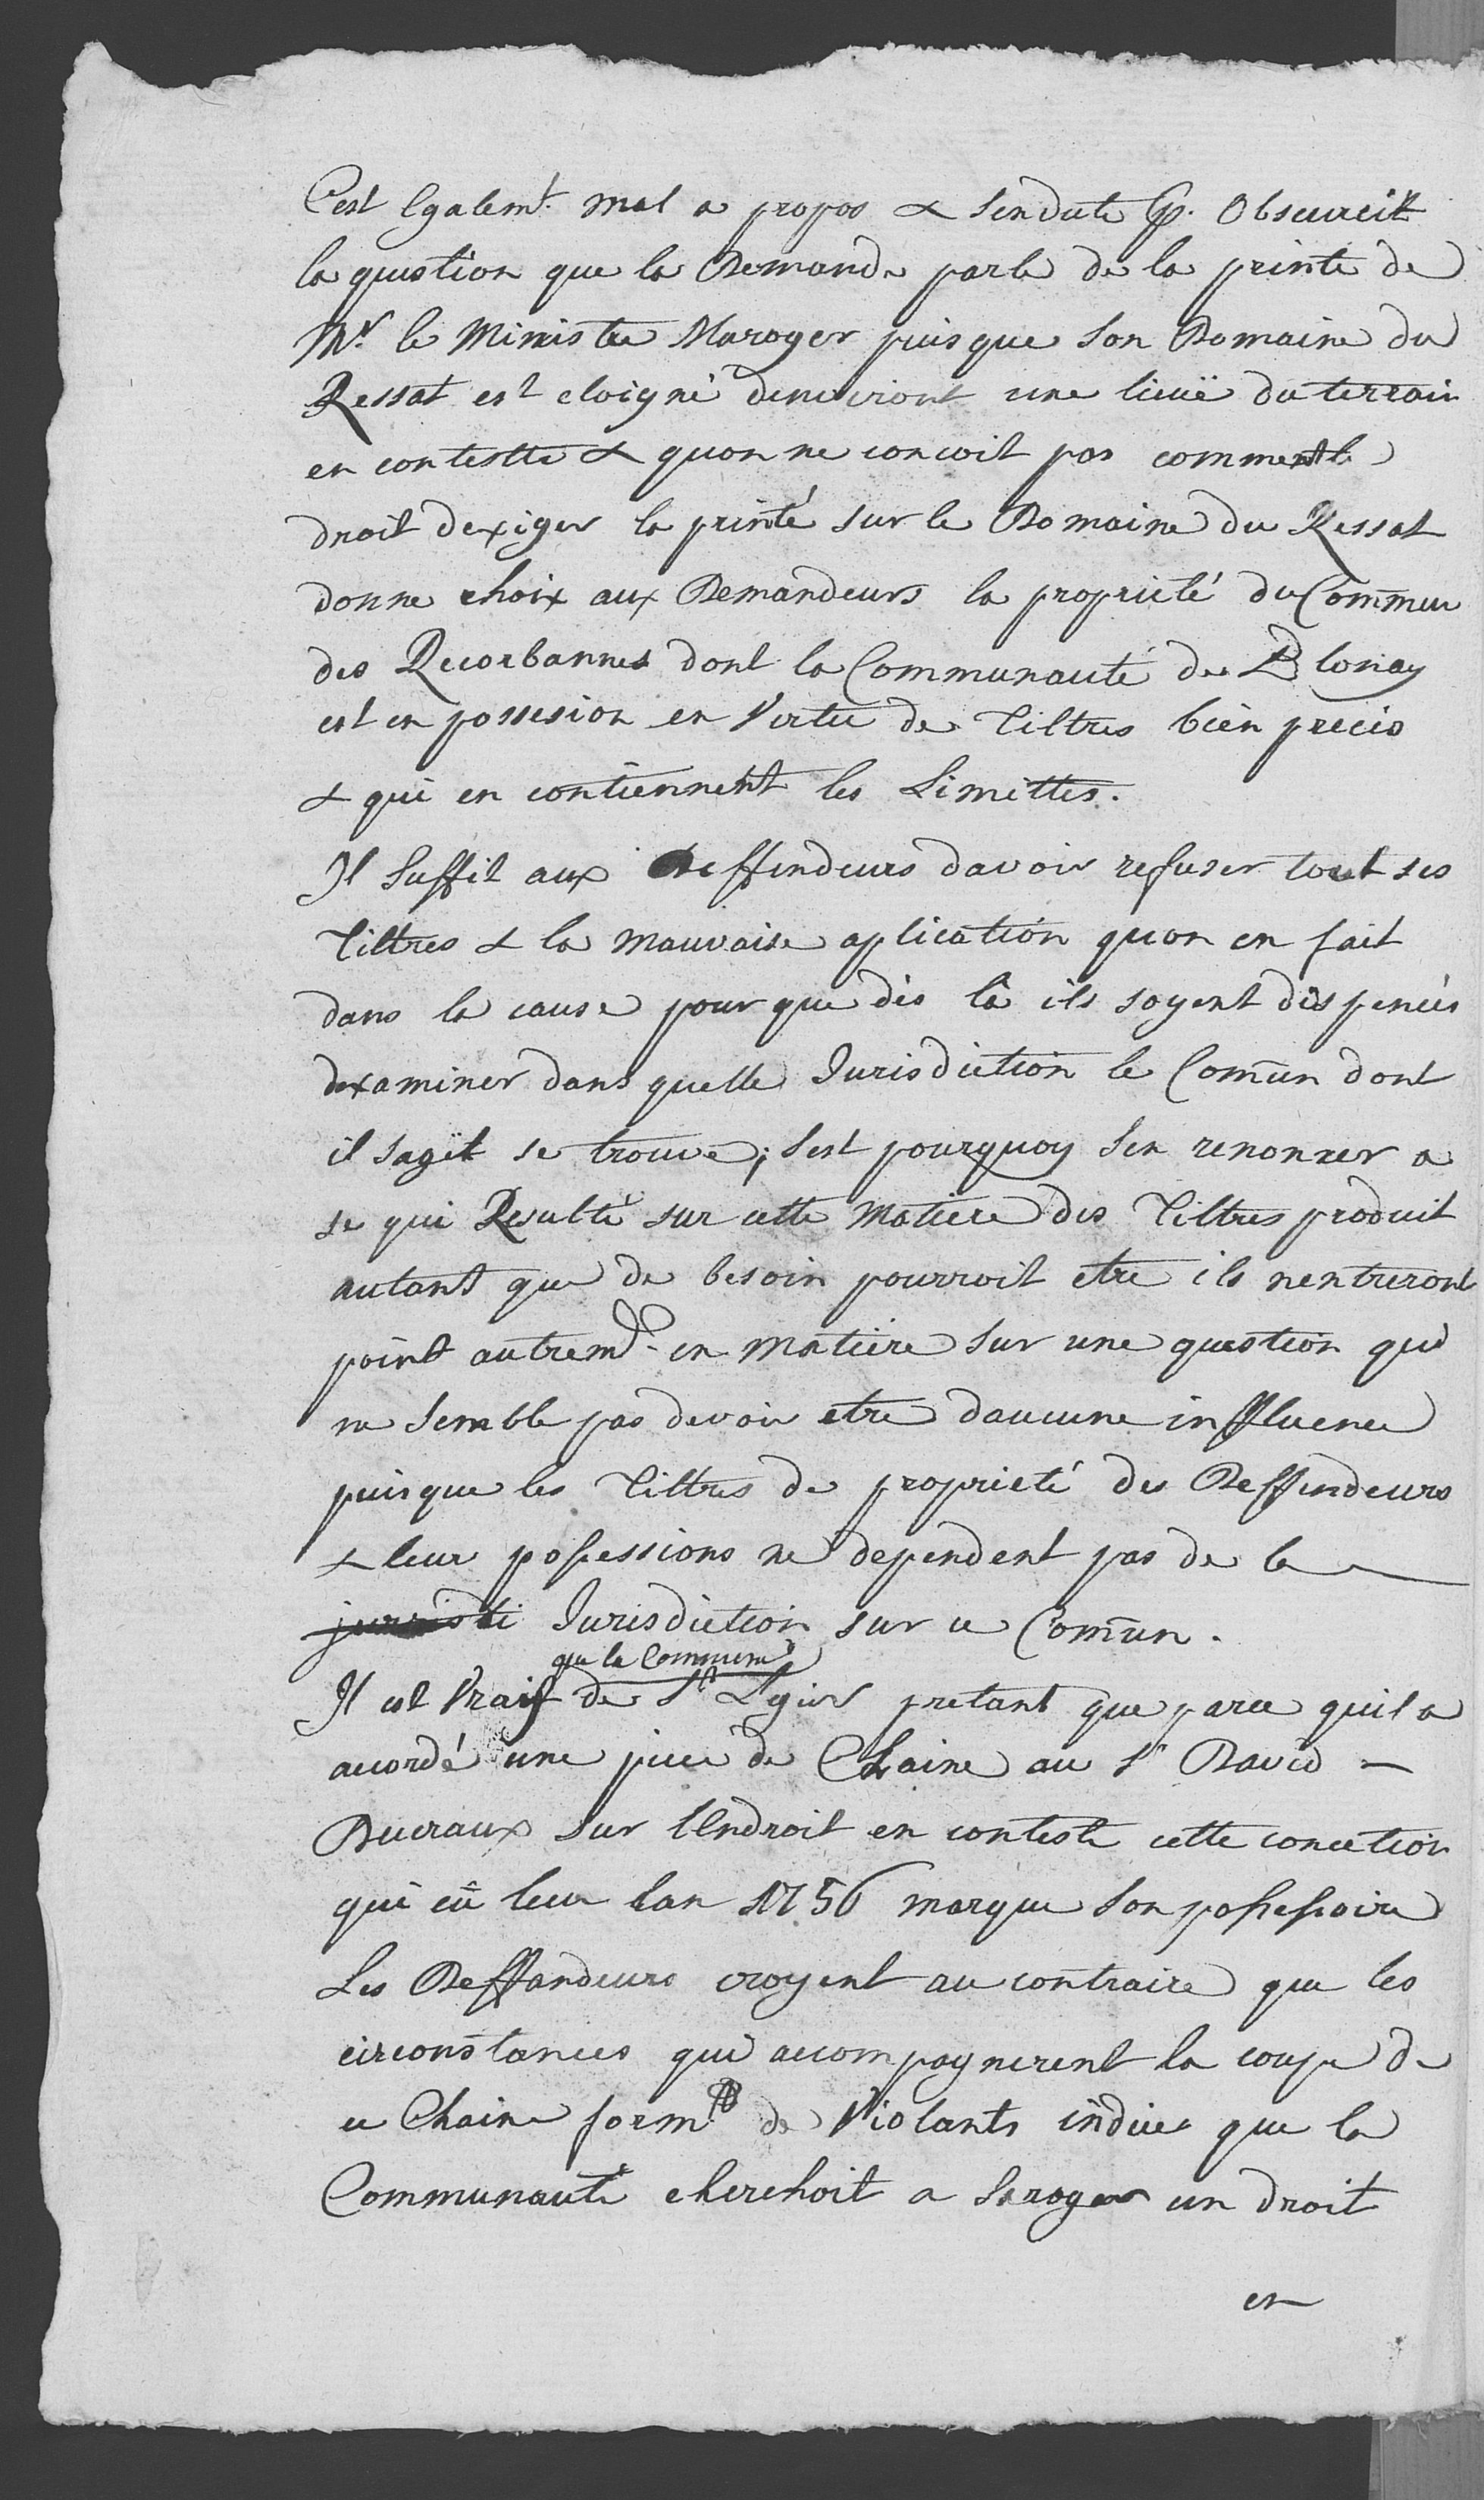 C'est Egalemt. mal a propos & sendute p. Obscurcit
la question que la Demande parle de la printe de
Mr. le Ministre Maroger puis que son Domaine du
Ressat est eloigné denviront une lieuë du terrain
en conteste & quon ne concoit pas comment le
droit dexiger la printé sur le Domaine du Ressat
donne choix aux Demandeurs la proprieté du Commun
des Recorbannes dont la Communauté de Blonay
est en possesion en Vertu de Tiltres bien precis
& qui en contiennent les Limittes.
Il Suffit aux Deffendeurs davoir refuser tout ses
Tiltres & la mauvaise aplication quon en fait
dans la cause pour que dès là ils soyent dispensés
dexaminer dans quelle Jurisdiction le Comun dont
il sagit se trouve; Sest pourquoy Sen renonxer a
se qui Resulté sur cette Matiere des Tiltres produit
autant que de besoin pourroit etre ils nentreront
point autremt. en matiere Sur une question qui
ne Semble pas devoir etre daucune influence
puisque les Tiltres de proprieté des Deffendeurs
& leur possessions ne dependent pas de la
juristi Jurisdiction sur ce Comun.
que la Commune
Il est Vrais de St Legier pretant que parce quil a
accordé une piece de Chaine au Sr David
Ducraux Sur lEndroit en conteste cette concetion
qui eû leur lan 1756 marque Son possessoire
Les Deffandeurs croyent au contraire que les
circonstances qui accompagnerent la coupe de
ce Chaine form de Violants indice que la
Communauté cherchoit a Saroger un droit
en